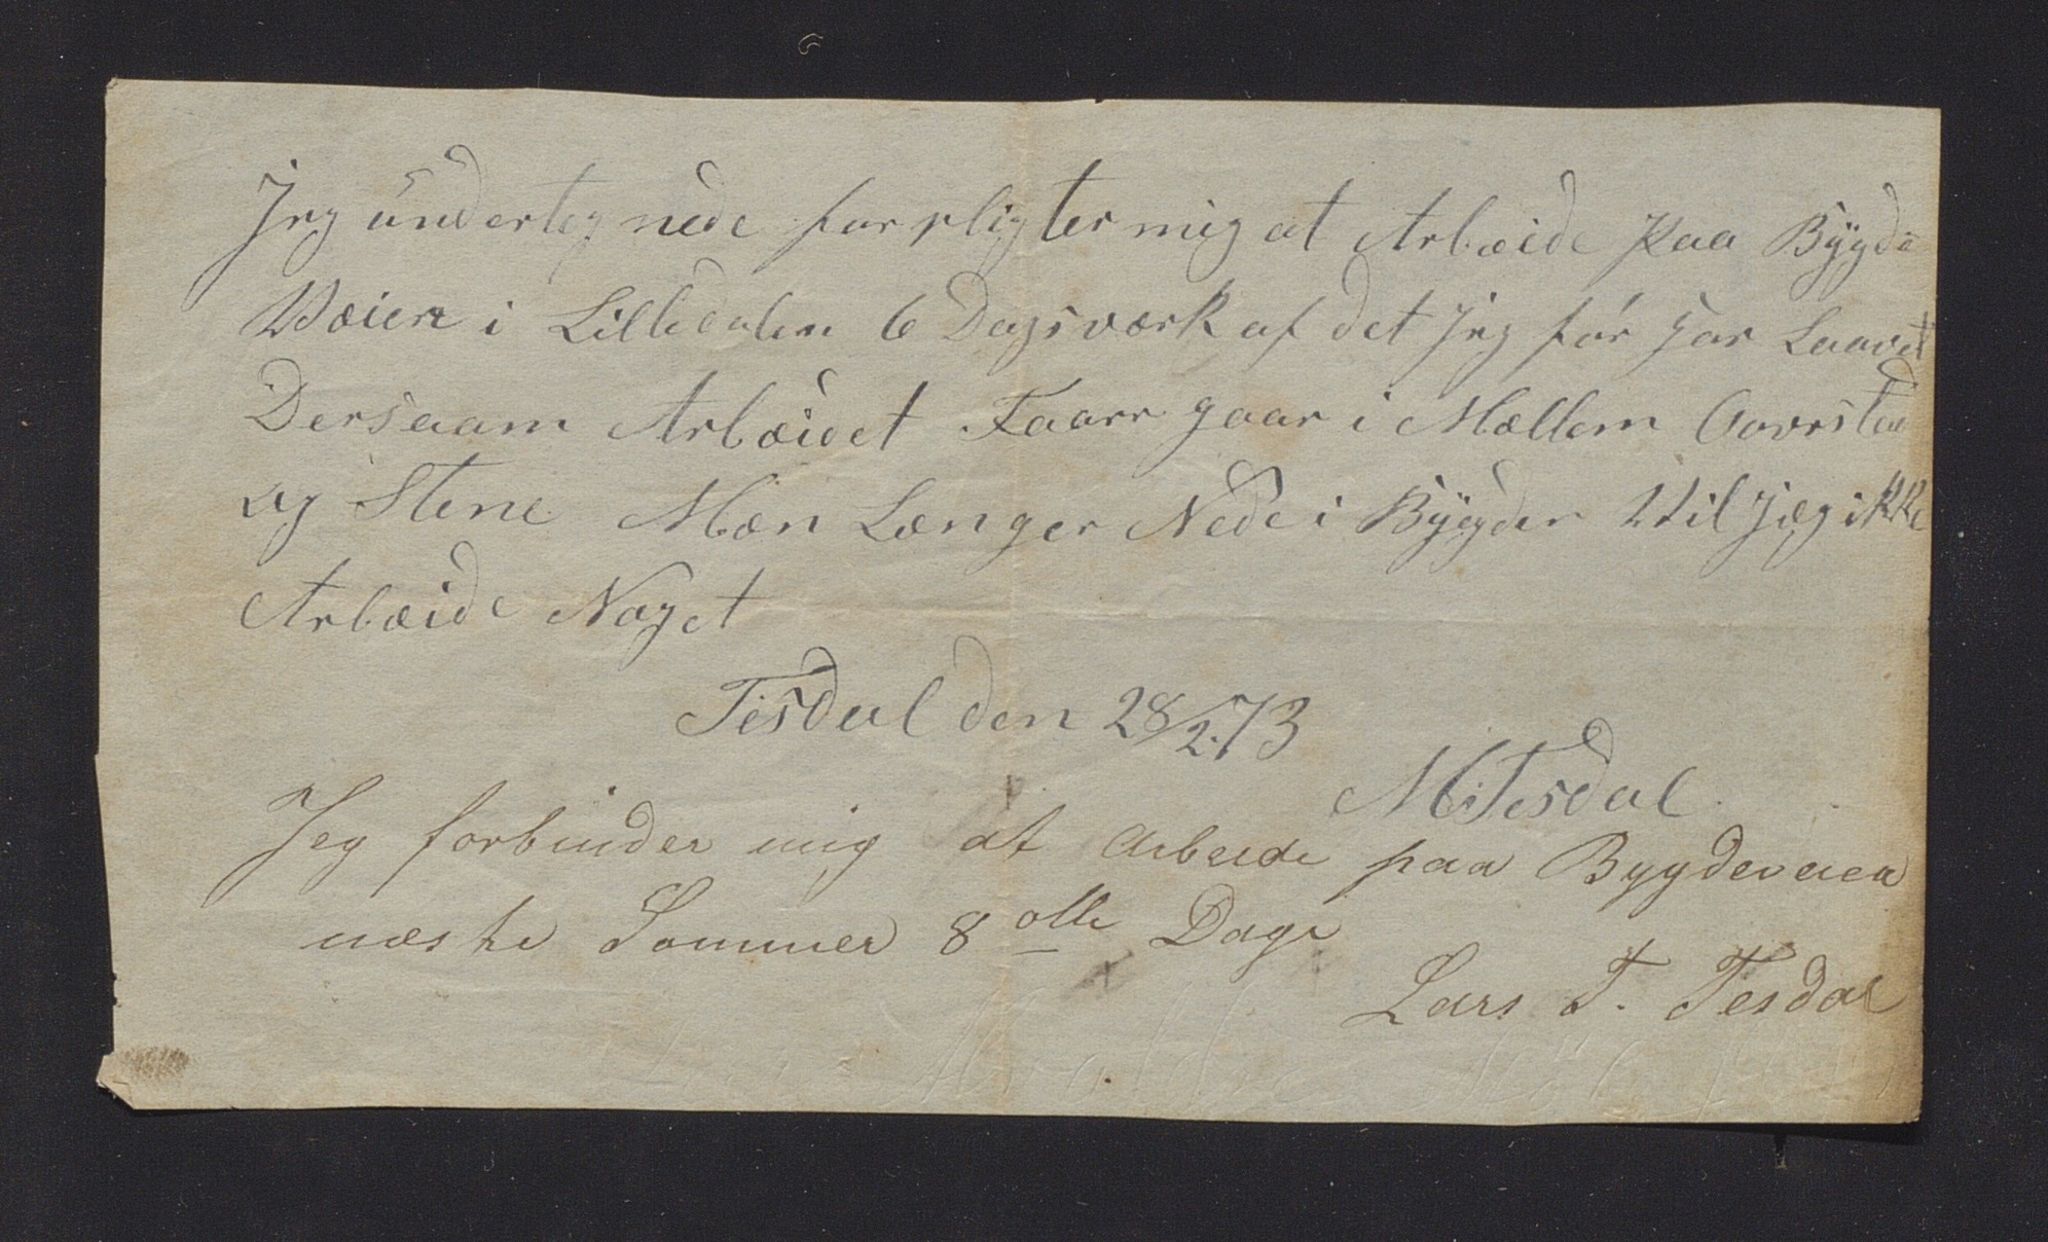 Jeg undertegnede forpligter mig at Arbæide paa Bygde
Væien i Lilledalen 6 Dagsværk af det jeg før har Laavet
Dersaam Arbæidet Faarr gaar i Mællem
og Stene Mæn Længer Nede i Bygden Vil jæg ikke
Arbæide Noget
Tesdal den 28/2.73
M. Tesdal
Jeg forbinder mig at arbeide paa Bygdeveien
næste Sommer 8 otte Dage
Lars T. Tesdal